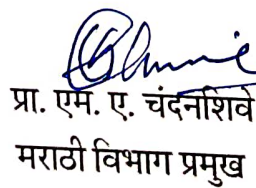 प्रा. एम. ए. चंदनशिवे
मराठी विभाग प्रमुख